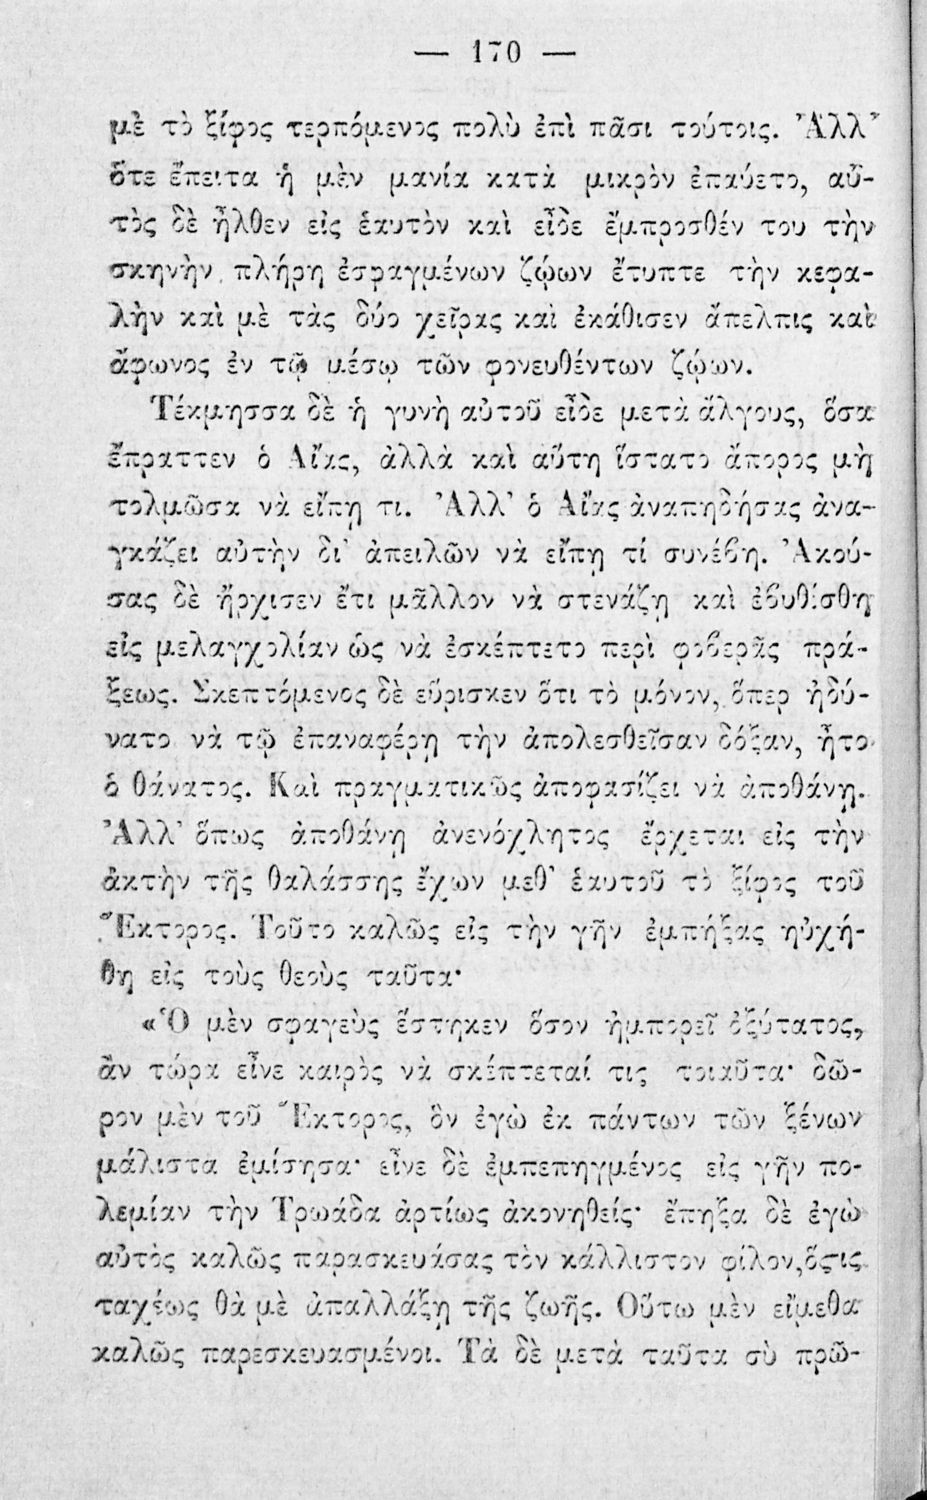 — 170 —
μὲ τὸ ξίφος τερπόμενος πολὺ ἐπὶ πᾶσι τούτοις. Ἀλλ’
ὅτε ἔπειτα ἡ μὲν μανία κατὰ μικρὸν ἐπαύετο, αὐ-
τὸς δὲ ἦλθεν εἰς ἑαυτὸν καὶ εἶδε ἔμπροσθέν του τὴν
σκηνὴν πλήρη ἐσφαγμένων ζῴων ἔτυπτε τὴν κεφα-
λὴν καὶ μὲ τὰς δύο χεῖρας καὶ ἐκάθισεν ἄπελπις καὶ
ἄφωνος ἐν τῷ μέσῳ τῶν φονευθέντων ζῴων.
Τέκμησσα δὲ ἡ γυνὴ αὐτοῦ εἶδε μετὰ ἄλγους, ὅσα
ἔπραττεν ὁ Αἴας, ἀλλὰ καὶ αὕτη ἵστατο ἄπορος μὴ
τολμῶσα νὰ εἴπῃ τι. Ἀλλ’ ὁ Αἴας ἀναπηδήσας ἀνα-
γκάζει αὐτὴν δι’ ἀπειλῶν νὰ εἴπῃ τί συνέβη. Ἀκού-
σας δὲ ἤρχισεν ἔτι μᾶλλον νὰ στενάζῃ καὶ ἐβυθίσθη
εἰς μελαγχολίαν ὡς νὰ ἐσκέπτετο περὶ φοβερᾶς πρά-
ξεως. Σκεπτόμενος δὲ εὕρισκεν ὅτι τὸ μόνον, ὅπερ ἠδύ-
νατο νὰ τῷ ἐπαναφέρῃ τὴν ἀπολεσθεῖσαν δόξαν, ἦτο
ὁ θάνατος. Καὶ πραγματικῶς ἀποφασίζει νὰ ἀποθάνῃ.
Ἀλλ’ ὅπως ἀποθάνῃ ἀνενόχλητος ἔρχεται εἰς τὴν
ἀκτὴν τῆς θαλάσσης ἔχων μεθ’ ἑαυτοῦ τὸ ξίφος τοῦ
Ἕκτορος. Τοῦτο καλῶς εἰς τὴν γῆν ἐμπήξας ηὐχή-
θη εἰς τοὺς θεοὺς ταῦτα·
«Ὁ μὲν σφαγεὺς ἕστηκεν ὅσον ἠμπορεῖ ὀξύτατος,
ἂν τώρα εἶνε καιρὸς νὰ σκέπτεταί τις τοιαῦτα· δῶ-
ρον μὲν τοῦ Ἕκτορος, ὃν ἐγὼ ἐκ πάντων τῶν ξένων
μάλιστα ἐμίσησα· εἶνε δὲ ἐμπεπηγμένος εἰς γῆν πο-
λεμίαν τὴν Τρωάδα ἀρτίως ἀκονηθείς· ἔπηξα δὲ ἐγὼ
αὐτὸς καλῶς παρασκευάσας τὸν κάλλιστον φίλον, ὅςτις
ταχέως θὰ μὲ ἀπαλλάξῃ τῆς ζωῆς. Οὕτω μὲν εἴμεθα
καλῶς παρεσκευασμένοι. Τὰ δὲ μετὰ ταῦτα σὺ πρῶ-